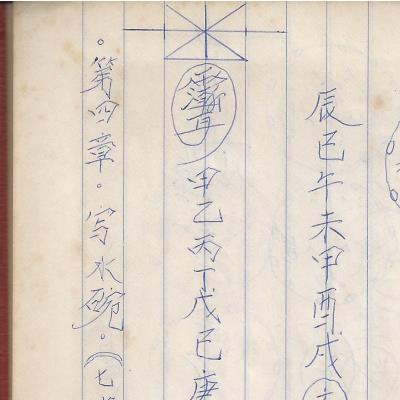 辰巳午未甲酉戌
甲乙丙丁戊己庚
。第四章。写水碗。(七